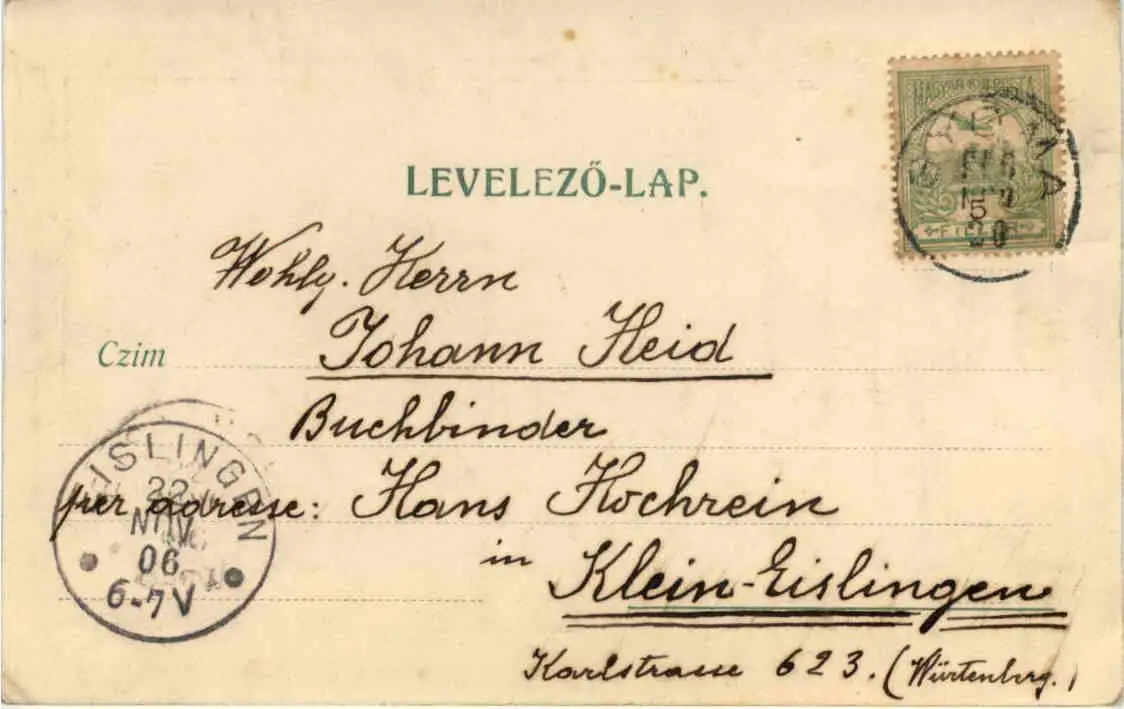 MAGYAR KIR. POSTA
5
FILLÉR
NOV
20
LEVELEZŐ-LAP.
Wohlg. Herrn
Czim Johann Heid
Buchbinder
per adresse: Hans Hochrein
in Klein-Eislingen
Karlstrasse 623. (Würtenberg.)
EISLINGEN
22
NOV
06
6-7V